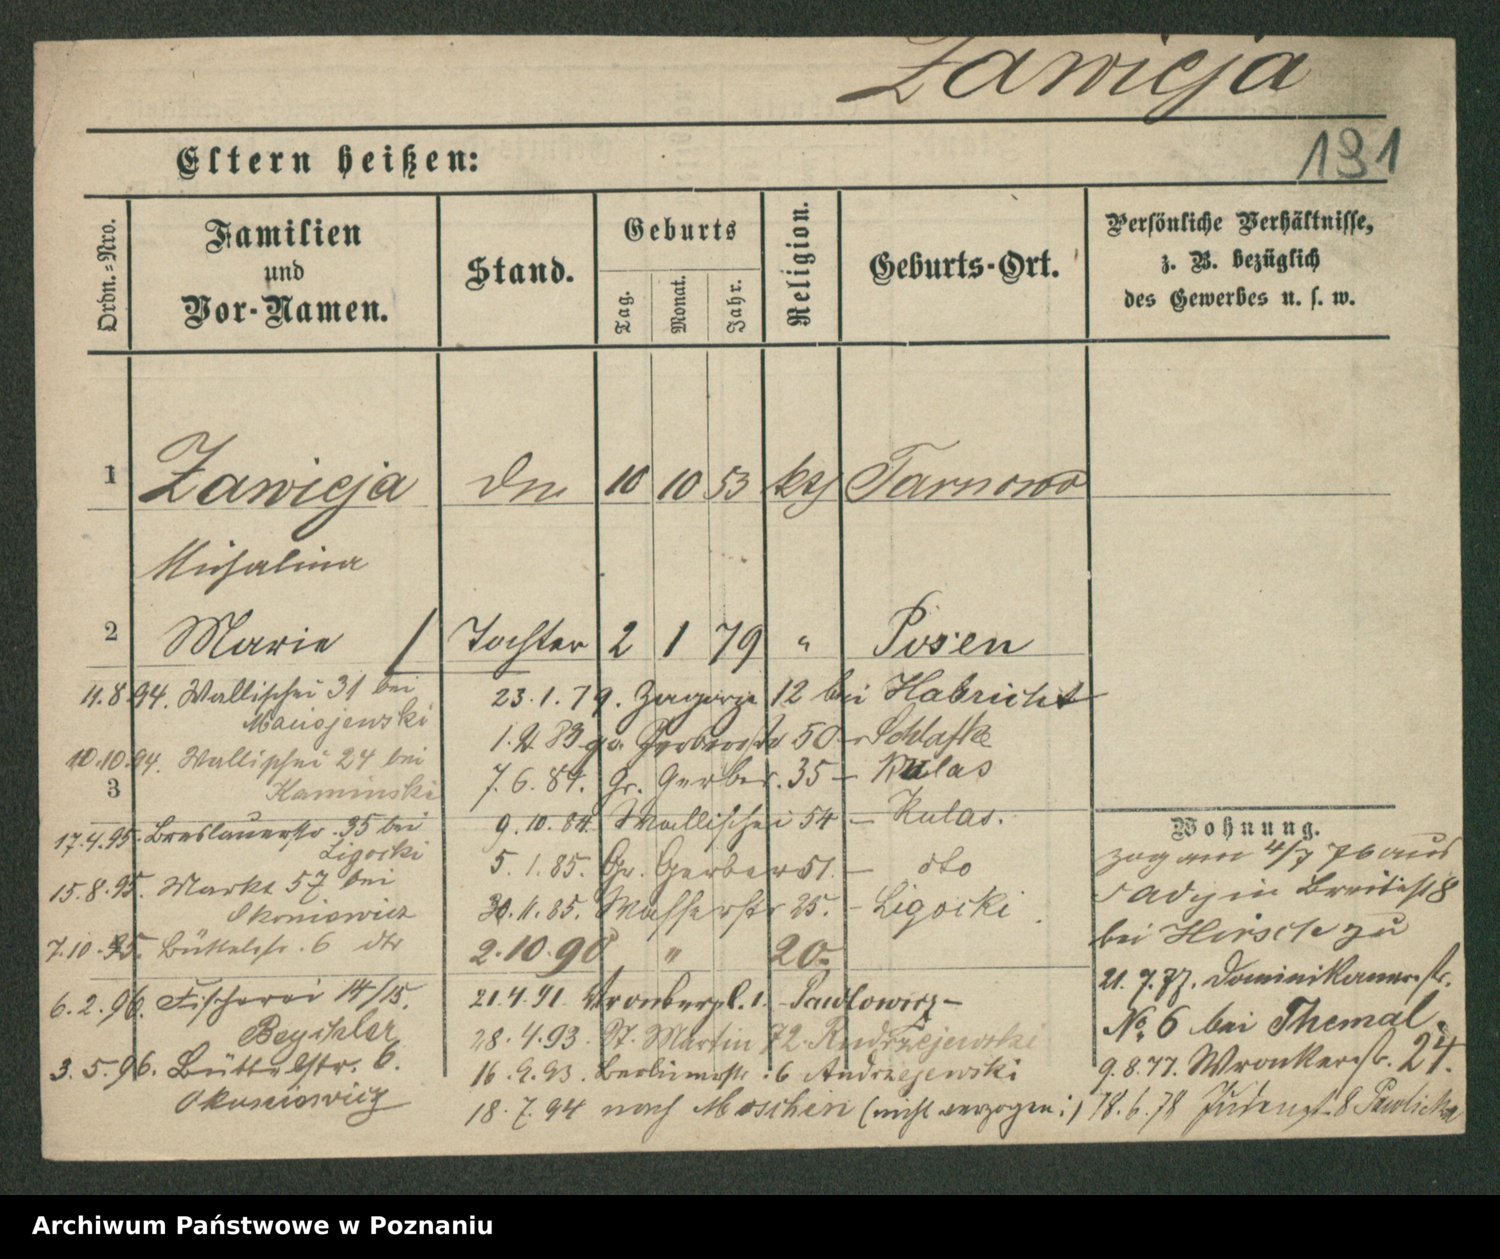 Zawieja
131
Eltern heißen:
Ordn.-Nro.
Familien
und
Vor-Namen.
Stand.
Geburts
Tag.
Monat.
Jahr.
Religion.
Geburts-Ort.
Persönliche Verhältnisse,
z. B. bezüglich
des Gewerbes u. s. w.
1 Zawieja 10 10 53 kth Tarnowo
Michalina
2 Marie / Tochter 2 1 79 " Posen
3
11.8.94. Wallischei 31 bei
Maciejewski
10.10.94. Wallischei 24 bei
Kaminski
17.4.95. Breslauerstr. 35 bei
Ligocki
15.8.95. Markt 57 bei
Skoniewicz
7.10.95. Büttelstr. 6 dto
6.2.96. Fischerei 14/15.
3.5.96. Büttelstr. 6.
23.1.79. Zagorze 12 bei Habricht
50 - Schlafke
7.6.84. Gr. Gerber. 35 - Kulas
9.10.84. Wallischei 54 - Kulas.
5.1.85. Gr. Gerber 51. - dto
30.11.85. Wasserstr 25. - Ligocki
2.10.90 " 20.
21.4.91. Wronkerpl. 1. - Pawlowicz -
28.4.93. St. Martin 72. Andrzejewski
16.9.93. Berlinerstr. 6 Andrzejewski
18.7.94 nach Moschin (nicht verzogen!)
Wohnung.
zog am 4/7 76 aus
Breitestr 8
bei Hirsch zu
21.7.77. Dominikanerstr.
No. 6 bei Themal.
9.8.77. Wronkerstr. 24.
18.6.78 Judenst. 8 Pawlicka
Archiwum Państwowe w Poznaniu